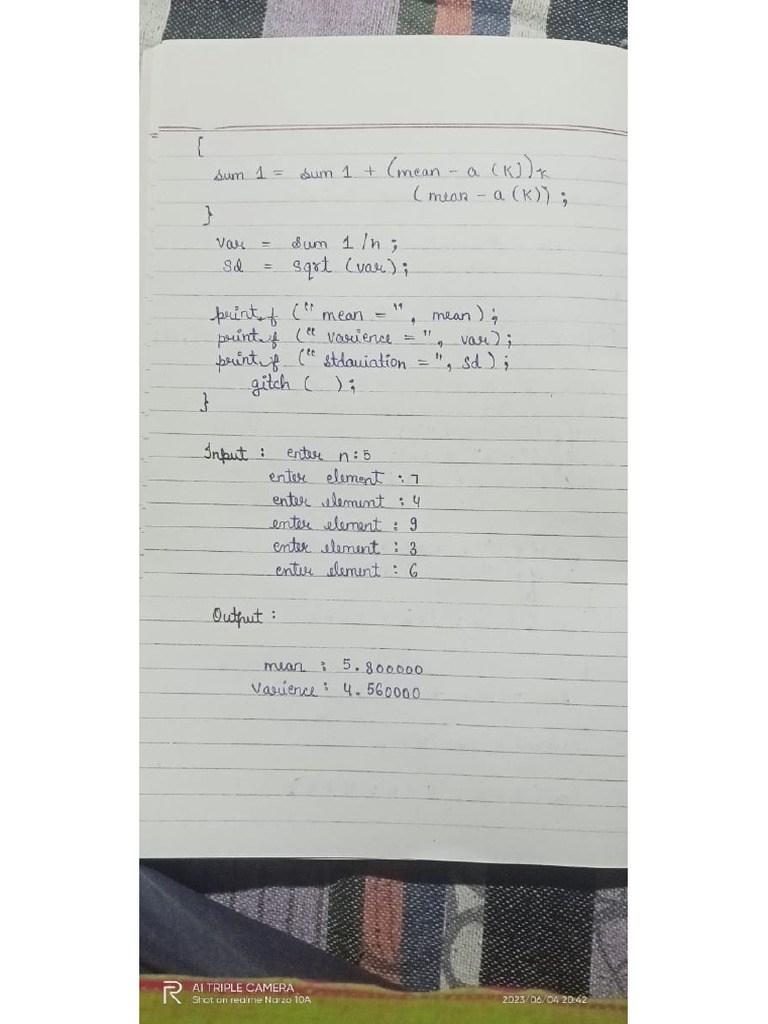 {
sum 1 = sum 1 + (mean - a (K))*
(mean - a (K));
}
var = sum 1/n;
sd = sqrt (var);
printf ("mean =", mean);
printf ("varience =", var);
printf ("stdaviation =", sd);
gitch ( );
}
Input : enter n:5
enter element : 7
enter element : 4
enter element : 9
enter element : 3
enter element : 6
Output :
mean : 5.800000
Varience : 4.560000
R AI TRIPLE CAMERA
Shot on realme Narzo 10A
2023/06/04 20:42